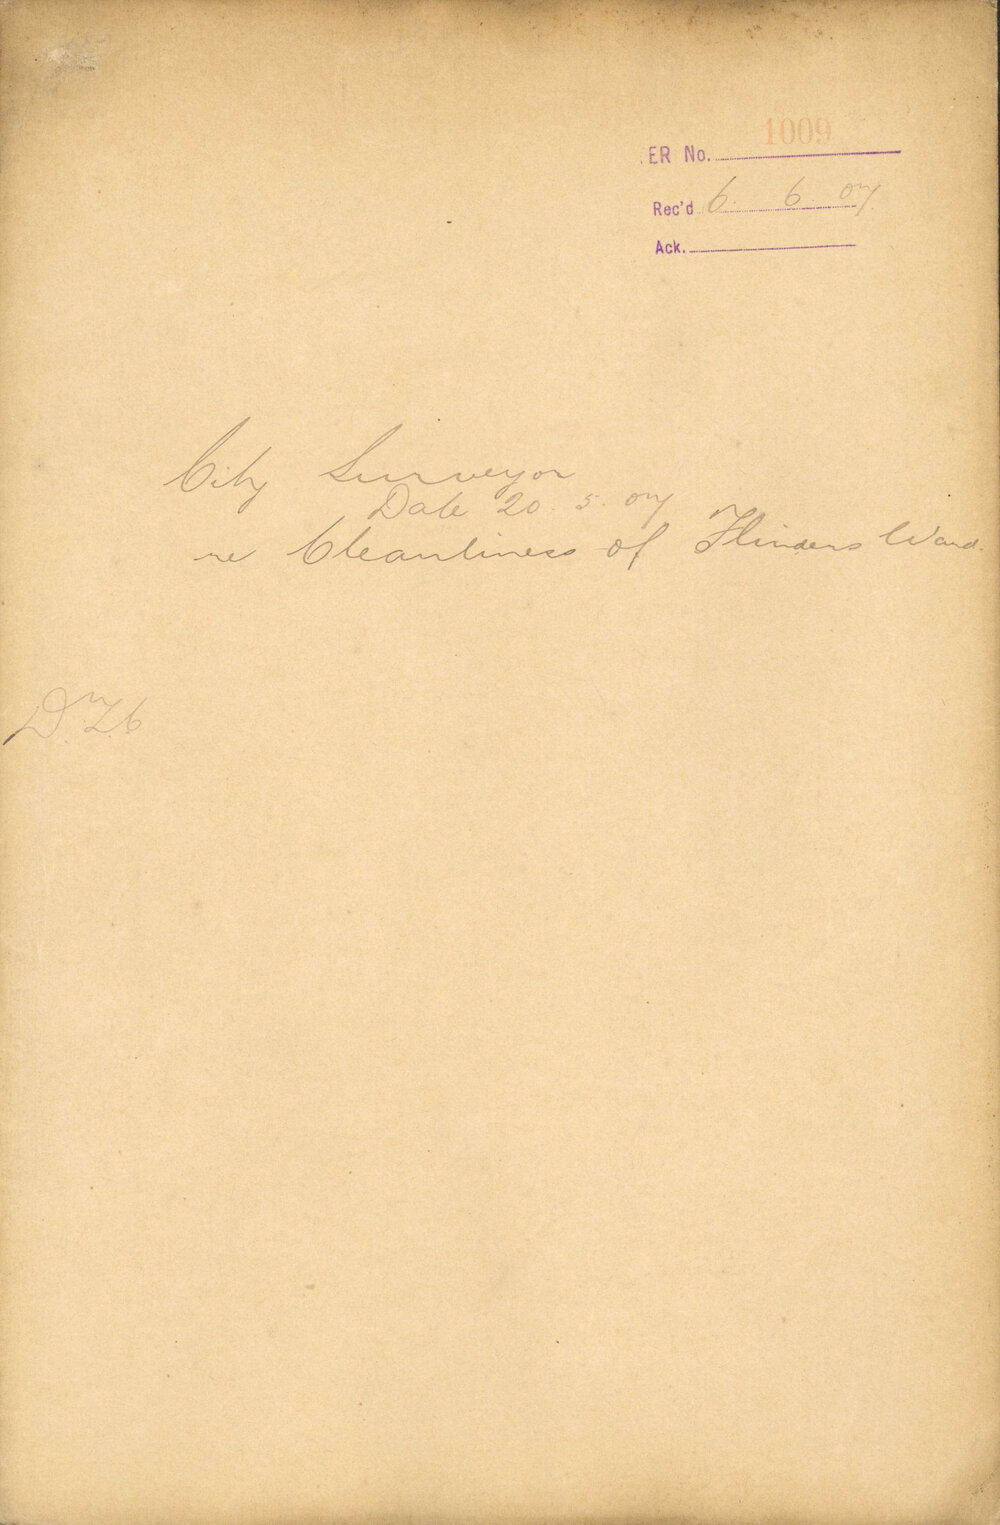 ER No. 1009
Rec'd 6. 6. 07.
Ack.
City Surveyor
Date 20. 5. 07
re Cleanliness of Flinders Ward.